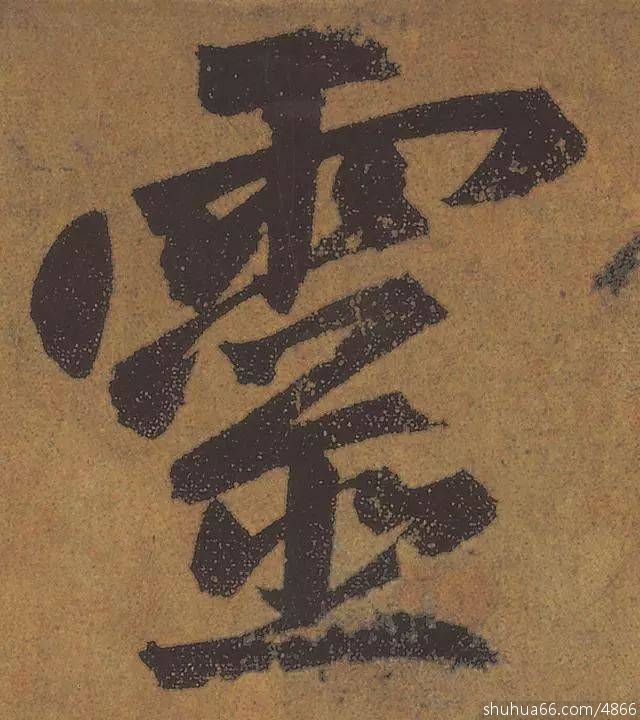 靈
shuhua66.com/4866